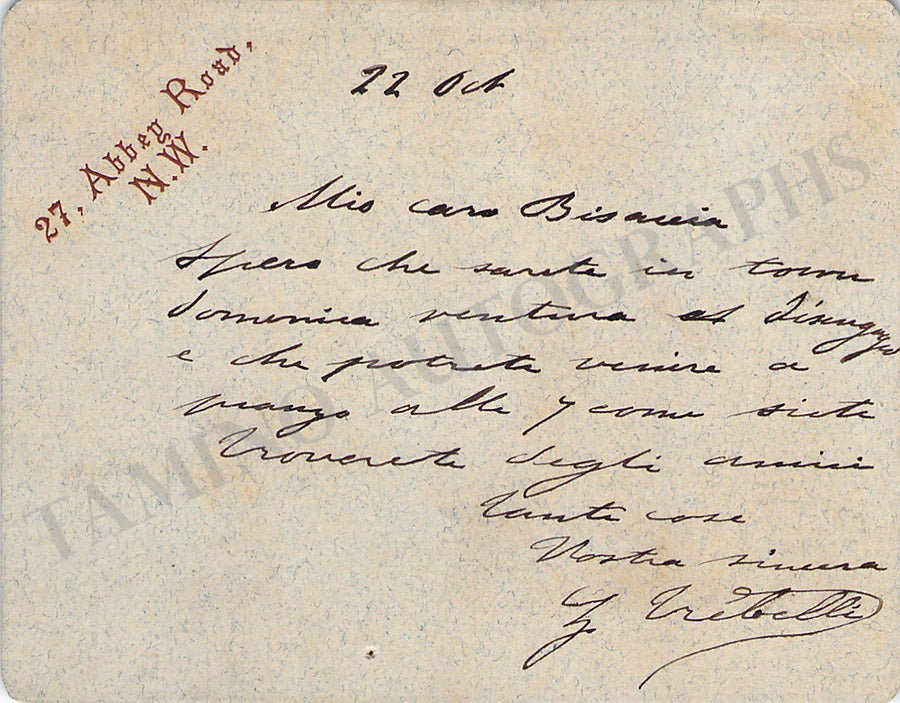 27, Abbey Road,
N.W.
22 Oct
Mio caro Bisaccia
Spero che sarete in town
domenica ventura
e che potrete venire a
pranzo alle 7 come siete
Troverete degli amici
Tante cose
Vostra sincera
Z Trebelli
TAMINO AUTOGRAPHS